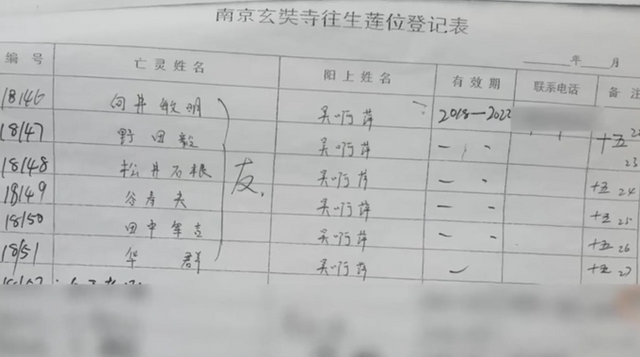 南京玄奘寺往生莲位登记表
年 月
编号 亡灵姓名 阳上姓名 有效期 联系电话 备注
18146 向井敏明 吴啊萍 2018—2022
18147 野田毅 吴啊萍 十五
23
18148 松井石根 友. 吴啊萍 十五 24
18149 谷寿夫 吴啊萍 十五 25
18150 田中军吉 吴啊萍 十五 26
18151 华群 吴啊萍 十五 27